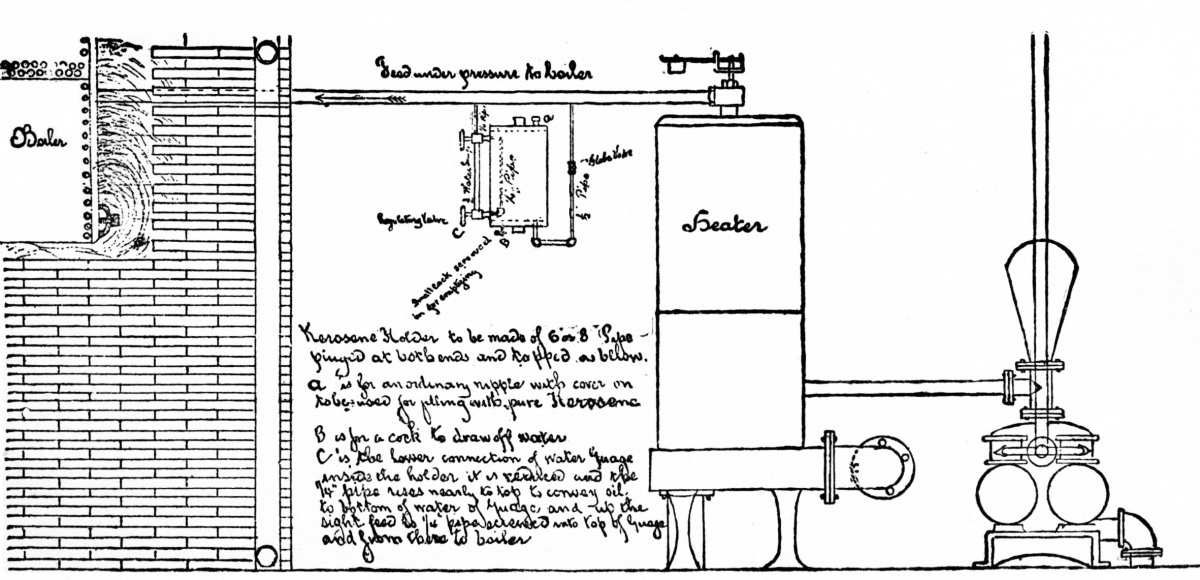 Feed under pressure to boiler
Boiler
a
Globe Valve
Pipe
Pipe
Regulating Valve
C
B
Small cock screwed
in for emptying
Heater
Kerosene Holder to be made of 6 or 8" Pipe
pluged at both ends and tapped as below.
a is for an ordinary nipple with cover on
to be used for filling with pure Kerosene
B is for a cock to draw off water
C is the lower connection of water Guage
inside the holder it is reduced and the
¼" pipe rises nearly to top to convey oil
to bottom of water of Guage and the
sight feed is ¼" pipe screwed into top of Guage
and from there to boiler